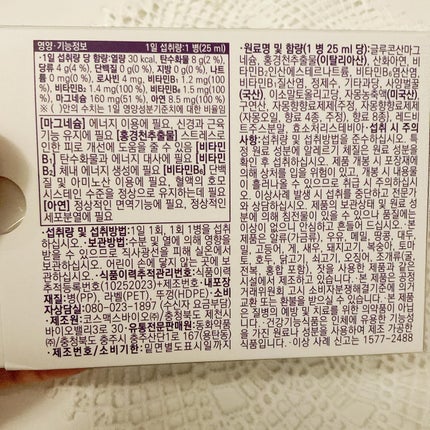 영양·기능정보 1일 섭취량:1병(25 ml)
·1일 섭취량 당 함량:열량 30 kcal, 탄수화물 8 g(2 %),
당류 4 g(4 %), 단백질 0 g(0 %), 지방 0 g(0 %), 나트
륨 0 mg(0 %), 로사빈 4 mg, 비타민B₁ 1.2 mg(100
%), 비타민B₂ 1.4 mg(100 %), 비타민B₆ 1.5 mg(100
%), 마그네슘 160 mg(51 %), 아연 8.5 mg(100 %)
※( %) 안의 수치는 1일 영양성분기준치에 대한 비율임
[마그네슘] 에너지 이용에 필요, 신경과 근육
기능 유지에 필요 [홍경천추출물] 스트레스로
인한 피로 개선에 도움을 줄 수 있음 [비타민
B₁] 탄수화물과 에너지 대사에 필요 [비타민
B₂] 체내 에너지 생성에 필요 [비타민B₆] 단백
질 및 아미노산 이용에 필요, 혈액의 호모
시스테인 수준을 정상으로 유지하는데 필요
[아연] 정상적인 면역기능에 필요, 정상적인
세포분열에 필요
·섭취량 및 섭취방법:1일 1회, 1회 1병을 섭취
하십시오. ·보관방법:수분 및 열에 의해 영향을
받을 수 있으므로 직사광선을 피해 실온에서
보관하십시오. 어린이 손에 닿지 않는 곳에 보
관하십시오. ·식품이력추적관리번호:식품이력
추적등록번호(10252023)+제조번호 ·내포장
재질:병(PP), 라벨(PET), 뚜껑(HDPE) ·소비
자상담실:080-023-1897 (수신자 요금부담)
·제조원:코스맥스바이오㈜/충청북도 제천시
바이오밸리3로 30 ·유통전문판매원:동화약품
㈜/충청북도 충주시 충주산단1로 167(용탄동)
·제조번호/소비기한:밑면별도표시일까지
·원료명 및 함량(1 병 25 ml 당):글루콘산마그
네슘, 홍경천추출물(이탈리아산), 산화아연, 비
타민B₂인산에스테르나트륨, 비타민B₆염산염,
비타민B₁질산염, 정제수, 기타과당, 사양벌꿀
(국산) 아로니아농축액(미국산),
구연산, 자몽향향료제제(주정, 자몽향향료제제
(자몽오일, 향료 4종, 주정), 향료 8종), 레드비
트주스분말, 효소처리스테비아 ·섭취 시 주의
사항:섭취량 및 섭취방법을 준수하십시오. 특
정 원료 성분에 알레르기 체질인 경우 원료 성분을
확인 후 섭취하십시오. 제품 개봉 시 포장재에
의해 상처를 입을 위험이 있고, 개봉 시 내용물
이 흘러나올 수 있으므로 취급 시 주의하십시
오. 이상사례 발생 시 섭취를 중단하고 전문가
와 상담하십시오. 제품의 보관상태 및 원료 성
분에 의해 침전물이 있을 수 있으나 품질에는
이상이 없으니 안심하고 흔들어 드십시오. 본
제품은 알류(가금류), 우유, 메밀, 땅콩, 대두,
밀, 고등어, 게, 새우, 돼지고기, 복숭아, 토마
토, 호두, 닭고기, 쇠고기, 오징어, 조개류(굴,
전복, 홍합 포함), 잣을 사용한 제품과 같은
시설에서 제조하고 있습니다. 본 제품은 공정
거래위원회 고시 소비자분쟁해결기준에 의거
교환 또는 환불을 받으실 수 있습니다. 본 제품
은 질병의 예방 및 치료를 위한 의약품이 아닙
니다. ·건강기능식품은 인체에 유용한 기능성
을 가진 원료나 성분을 사용하여 제조 가공한
식품입니다. ·이상 사례 신고는 1577-2488